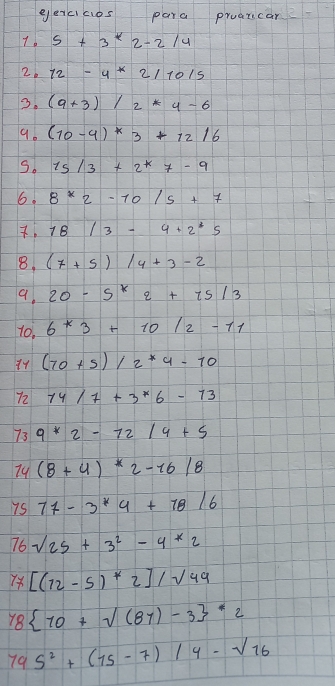 ejercicios para pruaticar
1. 5 + 3 * 2 - 2 / 4
2. 12 - 4 * 2 / 10 / 5
3. (9+3) / 2 * 4 - 6
4. (10 - 4) * 3 + 12 / 6
5. 15 / 3 + 2 * 7 - 9
6. 8 * 2 - 10 / 5 + 7
7. 18 / 3 - 4 + 2 * 5
8. (7 + 5) / 4 + 3 - 2
9. 20 - 5 * 2 + 15 / 3
10. 6 * 3 + 10 / 2 - 11
11 (10 + 5) / 2 * 4 - 10
12 14 / 7 + 3 * 6 - 13
13 9 * 2 - 12 / 4 + 5
14 (8 + 4) * 2 - 16 / 8
15 17 - 3 * 4 + 18 / 6
16 √25 + 3² - 4 * 2
17 [(12 - 5) * 2] / √49
18 {10 + √(81) - 3} * 2
19 5² + (15 - 7) / 4 - √16